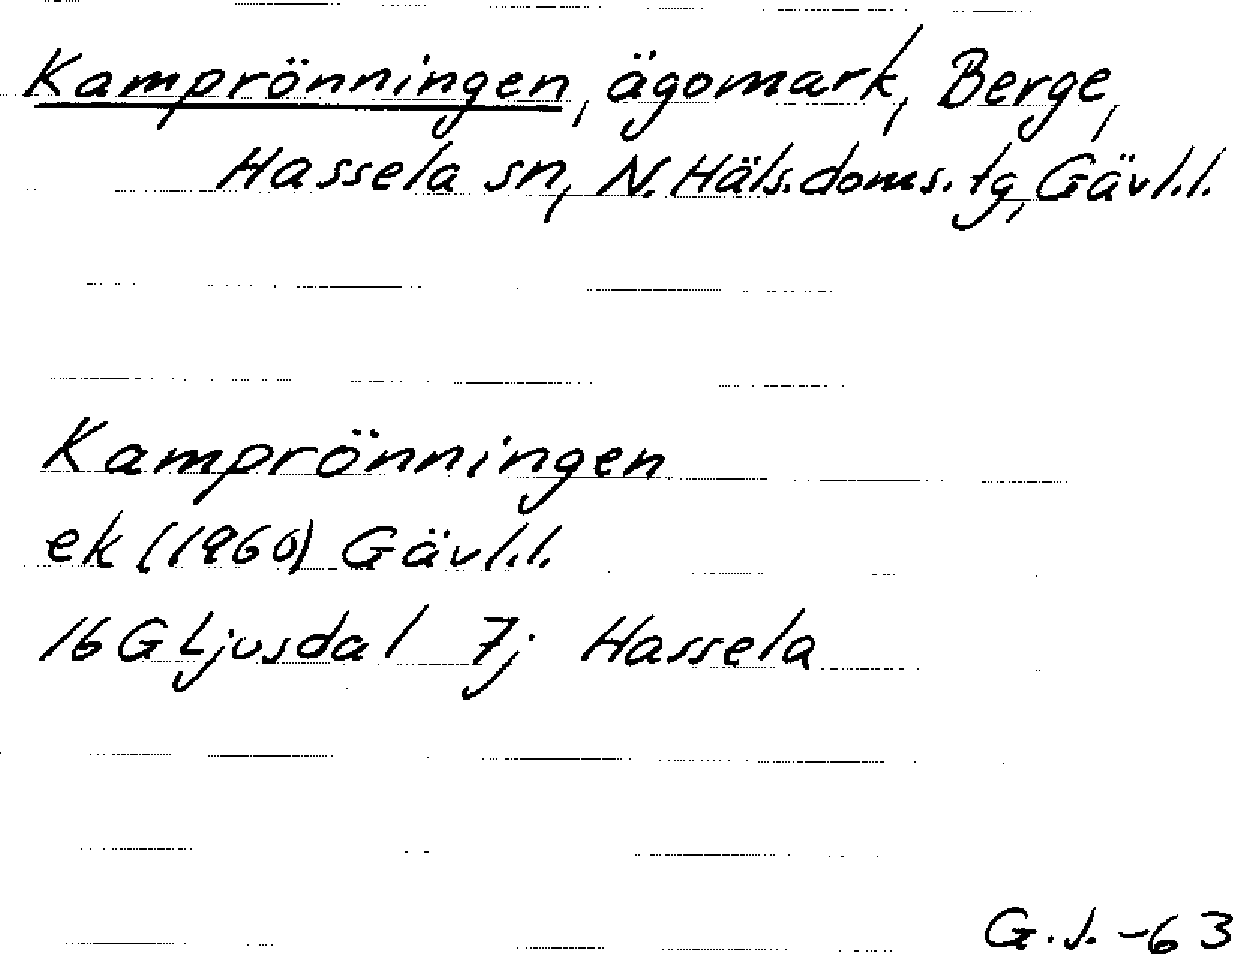 Kamprönningen, ägomark, Berge,
Hassela sn, N. Häls. doms. tg, Gävl.l.
Kamprönningen
ek (1960) Gävl.l.
16 G Ljusdal 7j Hassela
G.J. -63